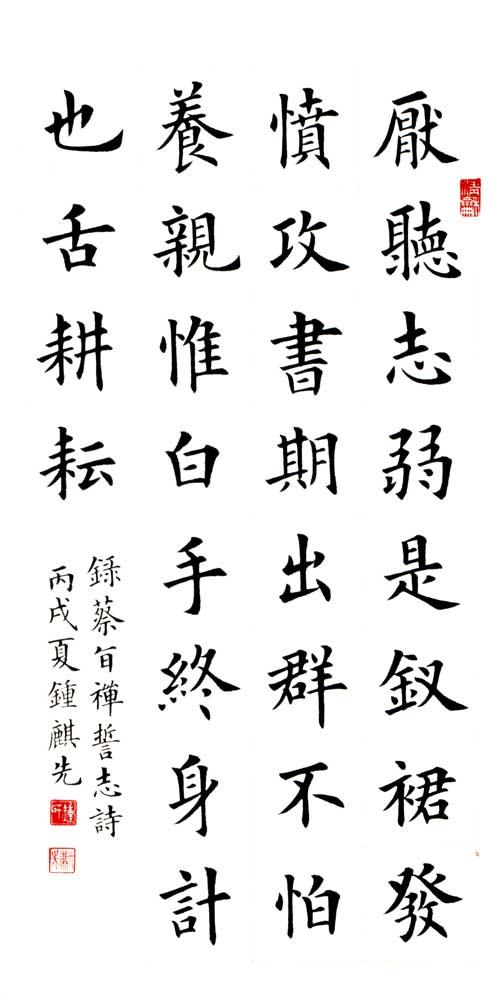 厭聽志弱是釵裙發
憤攻書期出群不怕
養親惟白手終身計
也舌耕耘
錄蔡旨禪誓志詩
丙戌夏鍾麒先